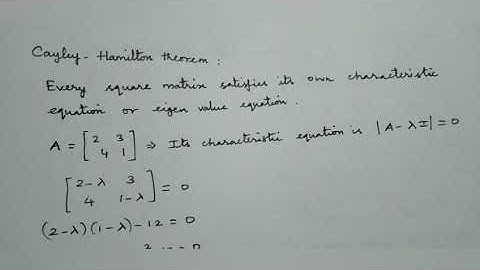 Cayley - Hamilton theorem :
Every square matrix satisfies its own characteristic
equation or eigen value equation.
A = [2 3
4 1] ⇒ Its characteristic equation is |A - λI| = 0
[2-λ 3
4 1-λ] = 0
(2-λ)(1-λ) - 12 = 0